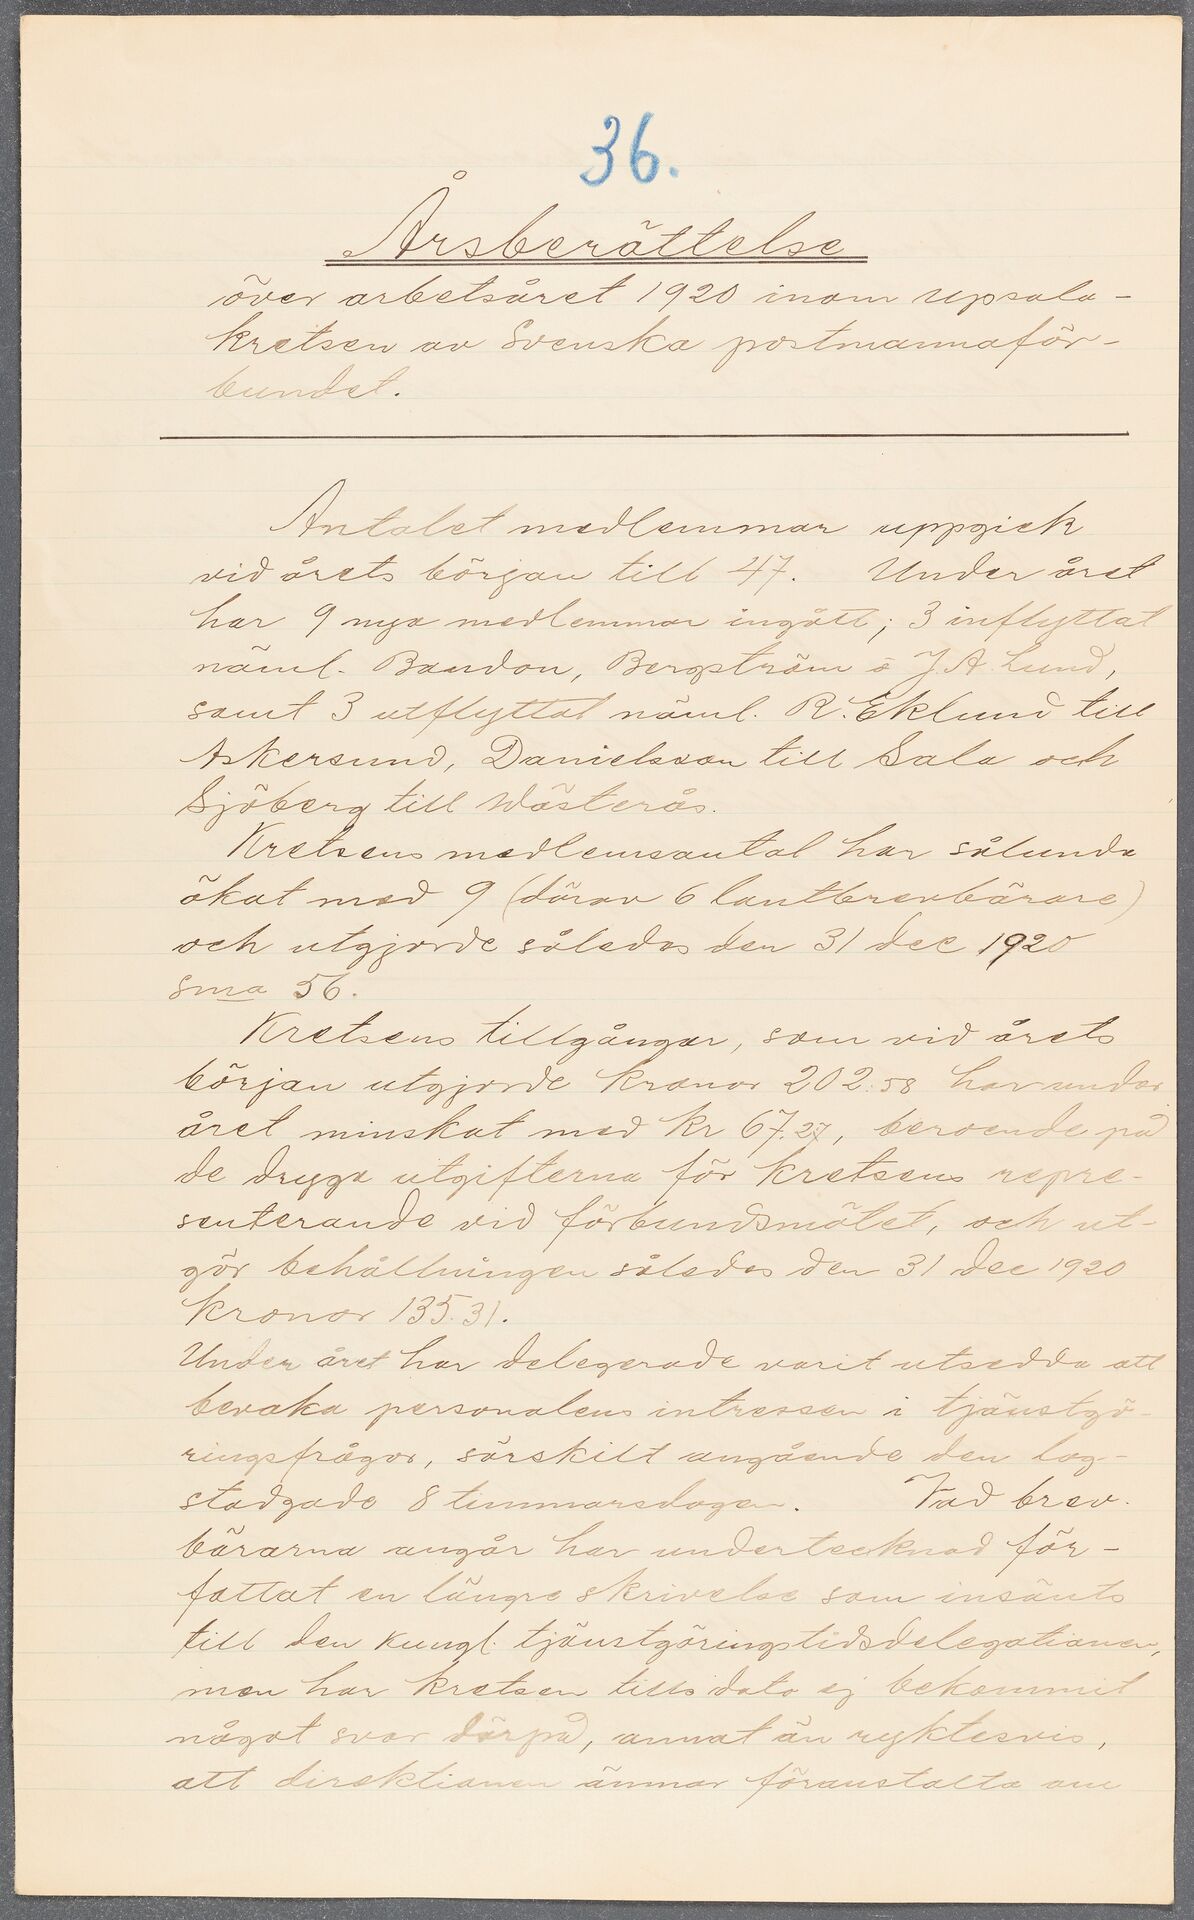 36.
Årsberättelse
över arbetsåret 1920 inom Upsala-
kretsen av Svenska postmannaför-
bundet.
Antalet medlemmar uppgick
vid årets början till 47. Under året
har 9 nya medlemmar ingått; 3 inflyttat
näml. Baudou, Bergström o J. A. Lund,
samt 3 utflyttat näml. R. Eklund till
Askersund, Danielsson till Sala och
Sjöberg till Västerås.
Kretsens medlemsantal har sålunda
ökat med 9 (därav 6 lantbrevbärare)
och utgjorde således den 31 dec 1920
Sma 56.
Kretsens tillgångar, som vid årets
början utgjorde kronor 202.58 har under
året minskat med kr 67.27, beroende på
de dryga utgifterna för kretsens repre-
senterande vid förbundsmötet, och ut-
gör behållningen således den 31 dec 1920
kronor 135.31.
Under året har delegerade varit utsedda att
bevaka personalens intressen i tjänstgö-
ringsfrågor, särskilt angående den lag-
stadgade 8 timmarsdagen. Vad brev-
bärarna angår har undertecknad för-
fattat en längre skrivelse som insänts
till den Kungl. tjänstgöringstidsdelegationen,
men har kretsen tills dato ej bekommit
något svar därpå, annat än ryktesvis,
att direktionen ämnar föranstalta om